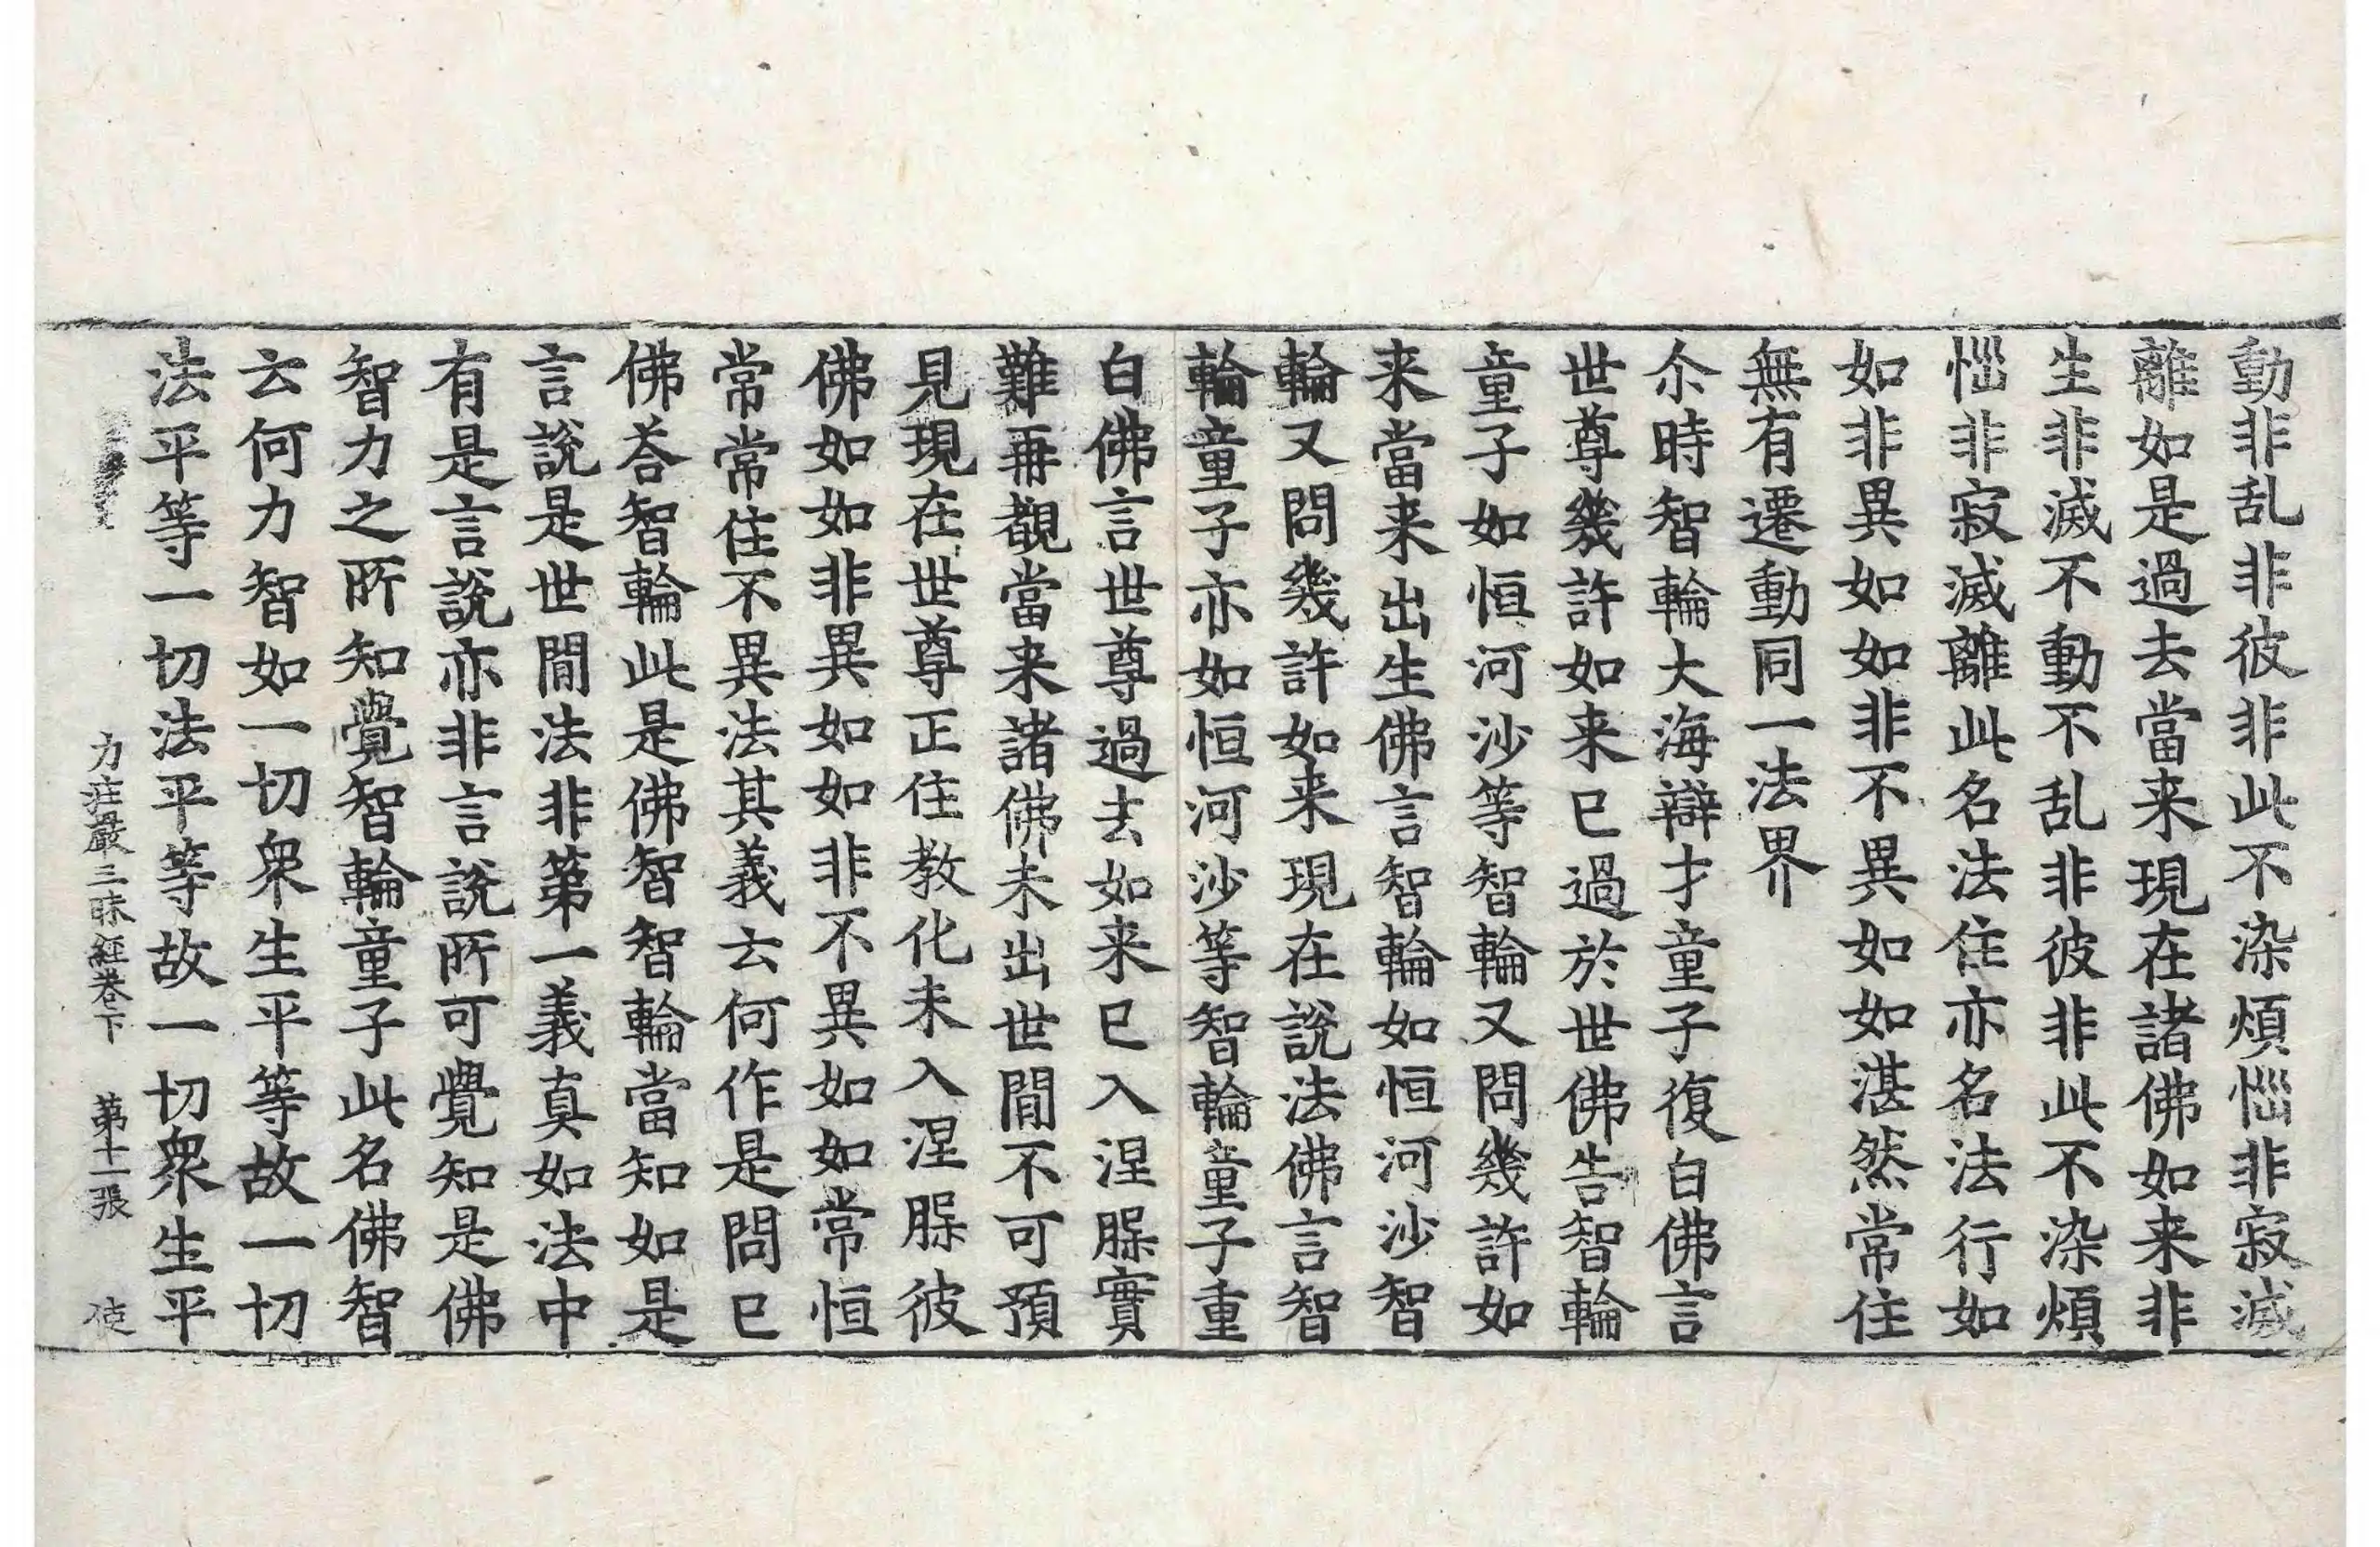 動非乱非彼非此不染煩惱非寂滅
離如是過去當来現在諸佛如来非
生非滅不動不乱非彼非此不染煩
惱非寂滅離此名法住亦名法行如
如非異如如非不異如如湛然常住
無有遷動同一法界
尒時智輪大海辯才童子復白佛言
世尊幾許如来已過於世佛告智輪
童子如恒河沙等智輪又問幾許如
来當来出生佛言智輪如恒河沙智
輪又問幾許如来現在說法佛言智
輪童子亦如恒河沙等智輪童子重
白佛言世尊過去如来已入涅槃實
難再覩當来諸佛未出世間不可預
見現在世尊正住教化未入涅槃彼
佛如如非異如如非不異如如常恒
常常住不異法其義云何作是問已
佛荅智輪此是佛智智輪當知如是
言說是世間法非第一義真如法中
有是言說亦非言說所可覺知是佛
智力之所知覺智輪童子此名佛智
云何力智如一切衆生平等故一切
法平等一切法平等故一切衆生平
力莊嚴三昧經卷下　第十一張　使